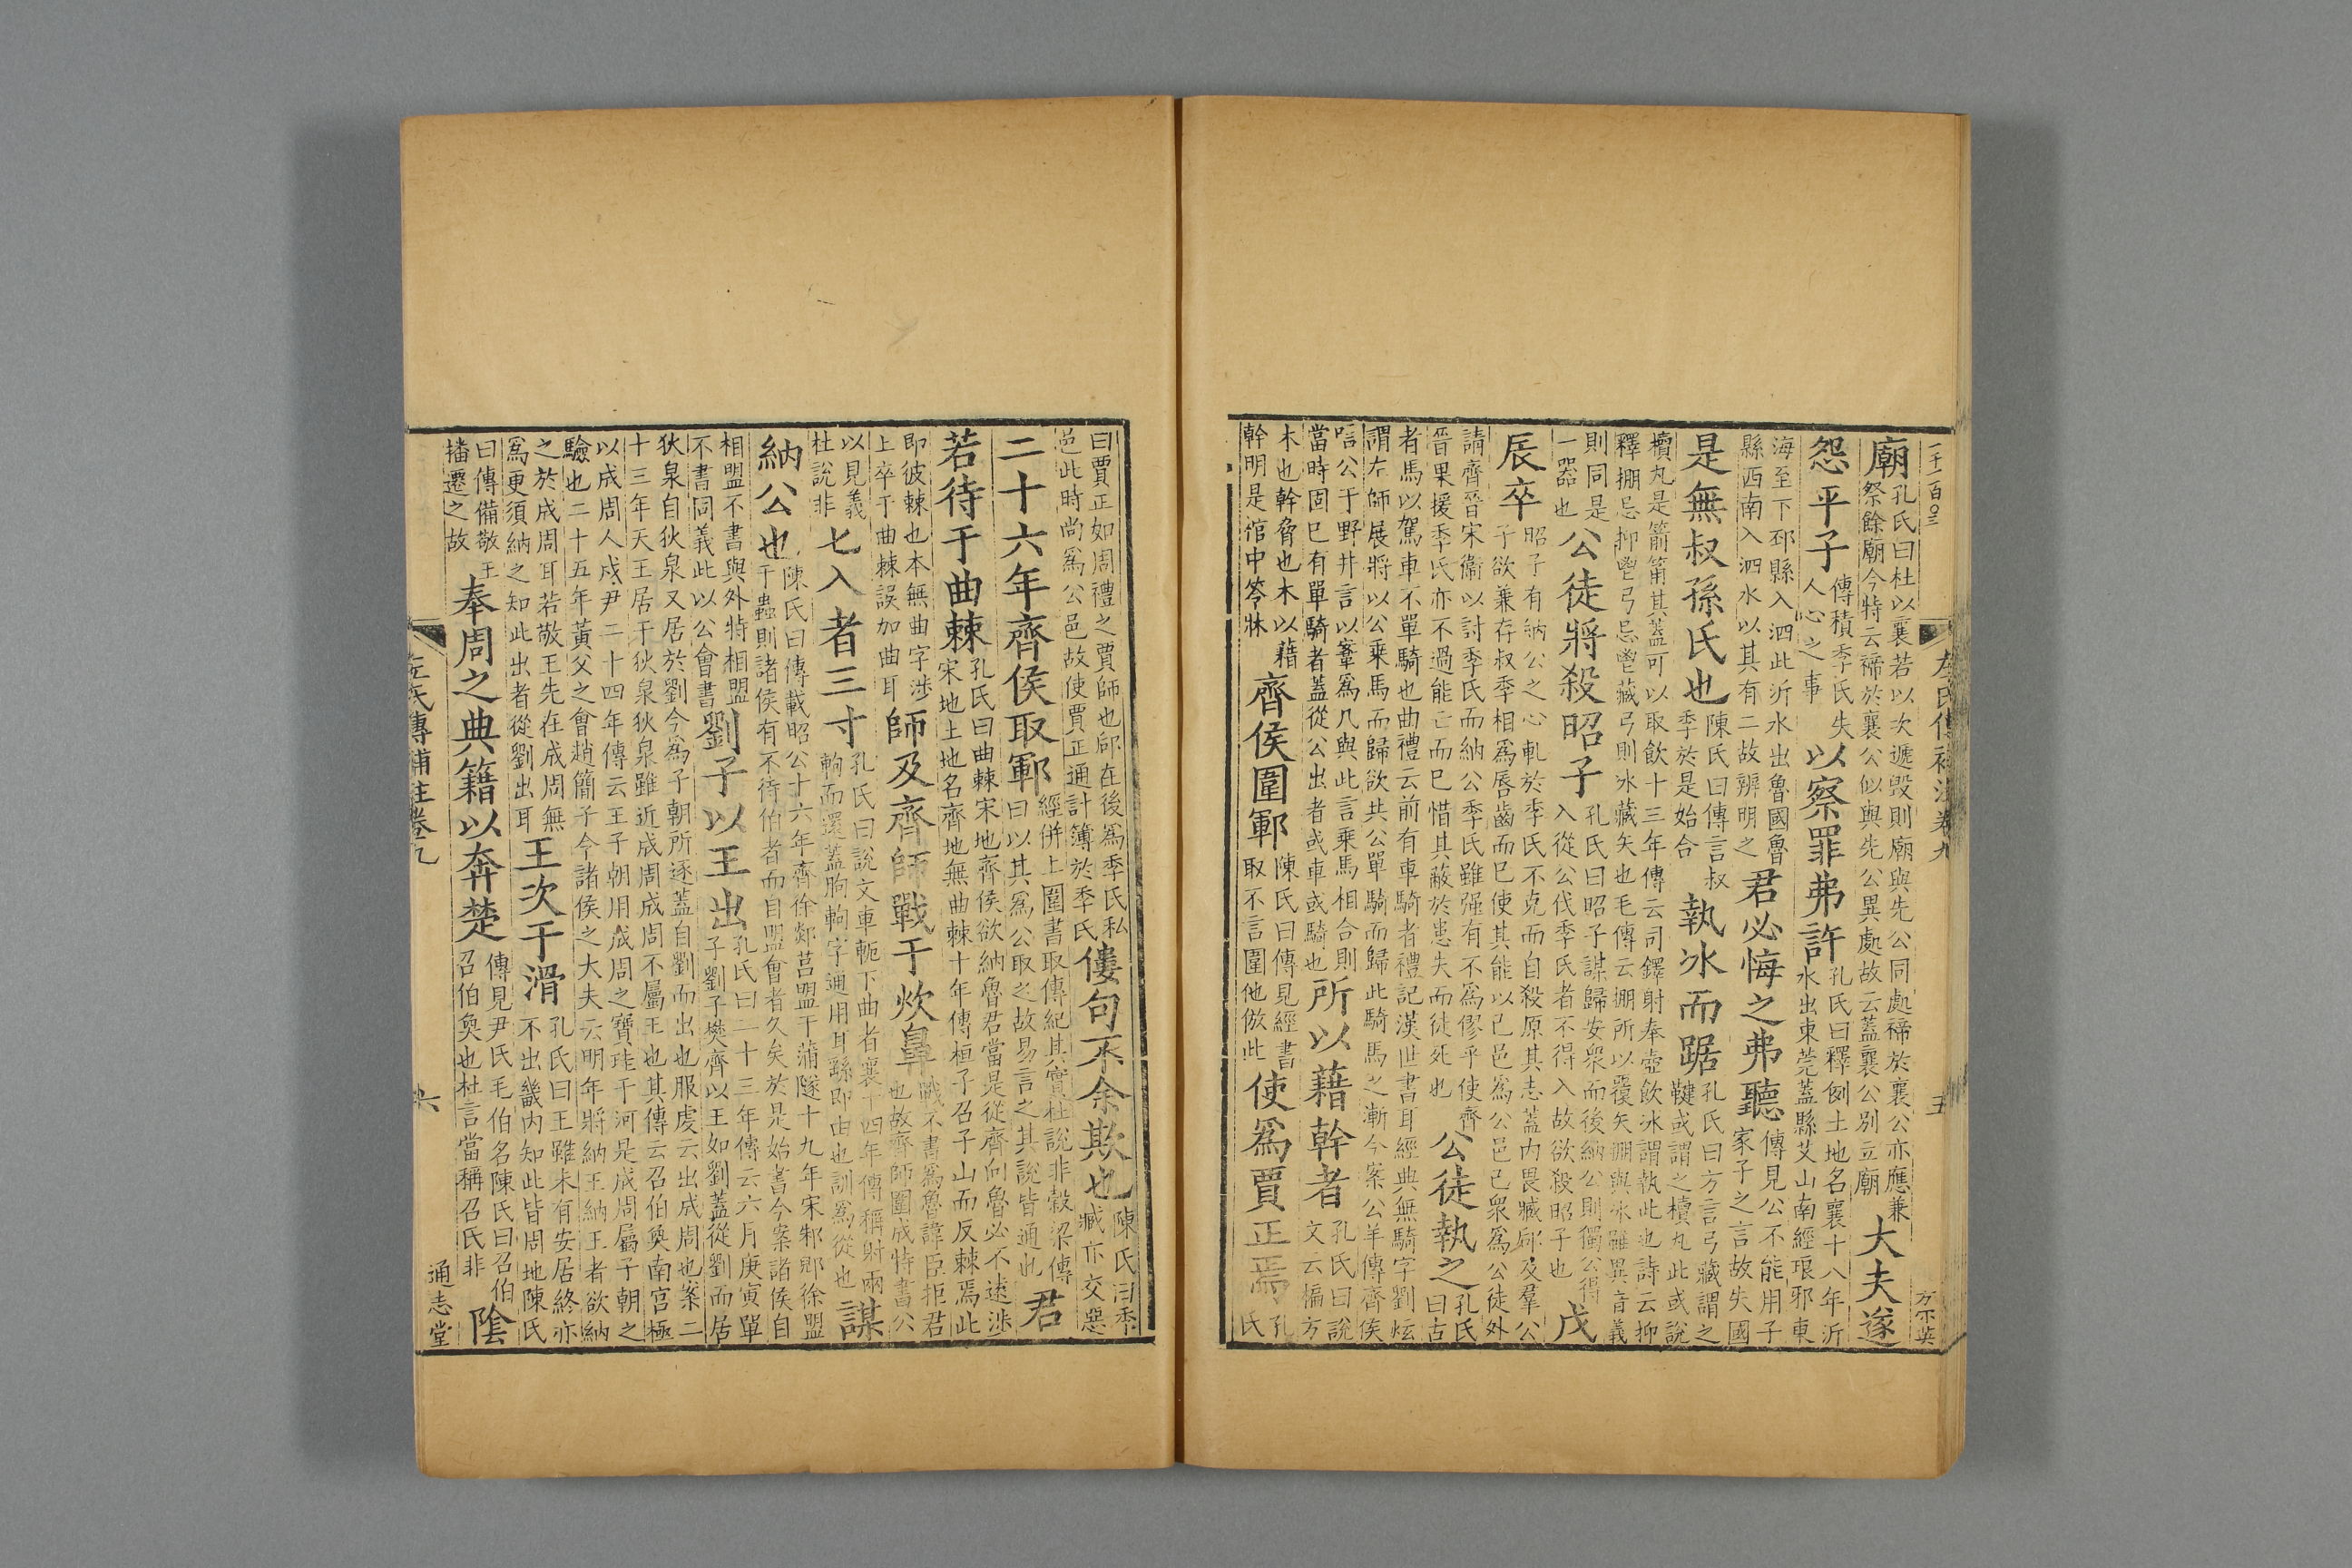 一千一百〇三
左氏傳補注卷九
五
方不英
廟孔氏曰杜以襄若以次遞毀則廟與先公同處禘於襄公亦應兼
祭餘廟今特云禘於襄公似與先公異處故云蓋襄公別立廟大夫遂
怨平子傳積季氏失
人心之事以察罪弗許孔氏曰釋例土地名襄十八年沂
水出東莞蓋縣艾山南經琅邪東
海至下邳縣入泗此沂水出魯國魯
縣西南入泗水以其有二故辨明之君必悔之弗聽傳見公不能用子
家子之言故失國
是無叔孫氏也陳氏曰傳言叔
季於是始合執冰而踞孔氏曰方言弓藏謂之
鞬或謂之櫝丸此或說
櫝丸是箭筩其蓋可以取飲十三年傳云司鐸射奉壺飲冰謂執此也詩云抑
釋掤忌抑鬯弓忌鬯藏弓則冰藏矢也毛傳云掤所以覆矢掤與冰雖異音義
則同是
一器也公徒將殺昭子孔氏曰昭子謀歸安衆而後納公則獨公得
入從公伐季氏者不得入故欲殺昭子也戊
辰卒昭子有納公之心軋於季氏不克而自殺原其志蓋内畏臧郈及羣公
子欲兼存叔季相爲唇齒而已使其能以已邑爲公邑已衆爲公徒外
請齊晉宋衞以討季氏而納公季氏雖强有不爲僇乎使齊
晉果援季氏亦不過能亡而已惜其蔽於患失而徒死也公徒執之孔氏
曰古
者馬以駕車不單騎也曲禮云前有車騎者禮記漢世書耳經典無騎字劉炫
謂左師展將以公乘馬而歸欲共公單騎而歸此騎馬之漸今案公羊傳齊侯
唁公于野井言以鞌爲几與此言乘馬相合則
當時固已有單騎者蓋從公出者或車或騎也所以藉幹者孔氏曰說
文云楄方
木也幹脅也木以藉
幹明是棺中笭牀齊侯圍鄆陳氏曰傳見經書
取不言圍他倣此使爲賈正焉孔
氏
曰賈正如周禮之賈師也郈在後爲季氏私
邑此時尚爲公邑故使賈正通計簿於季氏僂句不余欺也陳氏曰季
臧亦交惡
二十六年齊侯取鄆經併上圍書取傳紀其實杜說非穀梁傳
曰以其爲公取之故易言之其說皆通也君
若待于曲棘孔氏曰曲棘宋地齊侯欲納魯君當是從齊向魯必不遠涉
宋地土地名齊地無曲棘十年傳桓子召子山而反棘焉此
即彼棘也本無曲字涉
上卒于曲棘誤加曲耳師及齊師戰于炊鼻戰不書爲魯諱臣拒君
也故齊師圍成特書公
以見義
杜說非七入者三寸孔氏曰說文車軛下曲者襄十四年傳稱射兩
軥而還蓋朐軥字通用耳繇即由也訓爲從也謀
納公也陳氏曰傳載昭公十六年齊徐郯莒盟于蒲隧十九年宋邾郳徐盟
于蟲則諸侯有不待伯者而自盟會者久矣於是始書今案諸侯自
相盟不書與外特相盟
不書同義此以公會書劉子以王出孔氏曰二十三年傳云六月庚寅單
子劉子樊齊以王如劉蓋從劉而居
狄泉自狄泉又居於劉今爲子朝所逐蓋自劉而出也服虔云出成周也案二
十三年天王居于狄泉狄泉雖近成周成周不屬王也其傳云召伯奐南宮極
以成周人戍尹二十四年傳云王子朝用成周之寶珪于河是成周屬子朝之
驗也二十五年黃父之會趙簡子令諸侯之大夫云明年將納王納王者欲納
之於成周耳若敬王先在成周無
爲更須納之知此出者從劉出耳王次于滑孔氏曰王雖未有安居終亦
不出畿内知此皆周地陳氏
曰傳備敬王
播遷之故奉周之典籍以奔楚傳見尹氏毛伯名陳氏曰召伯
召伯奐也杜言當稱召氏非陰
左氏傳補注卷九
六
通志堂